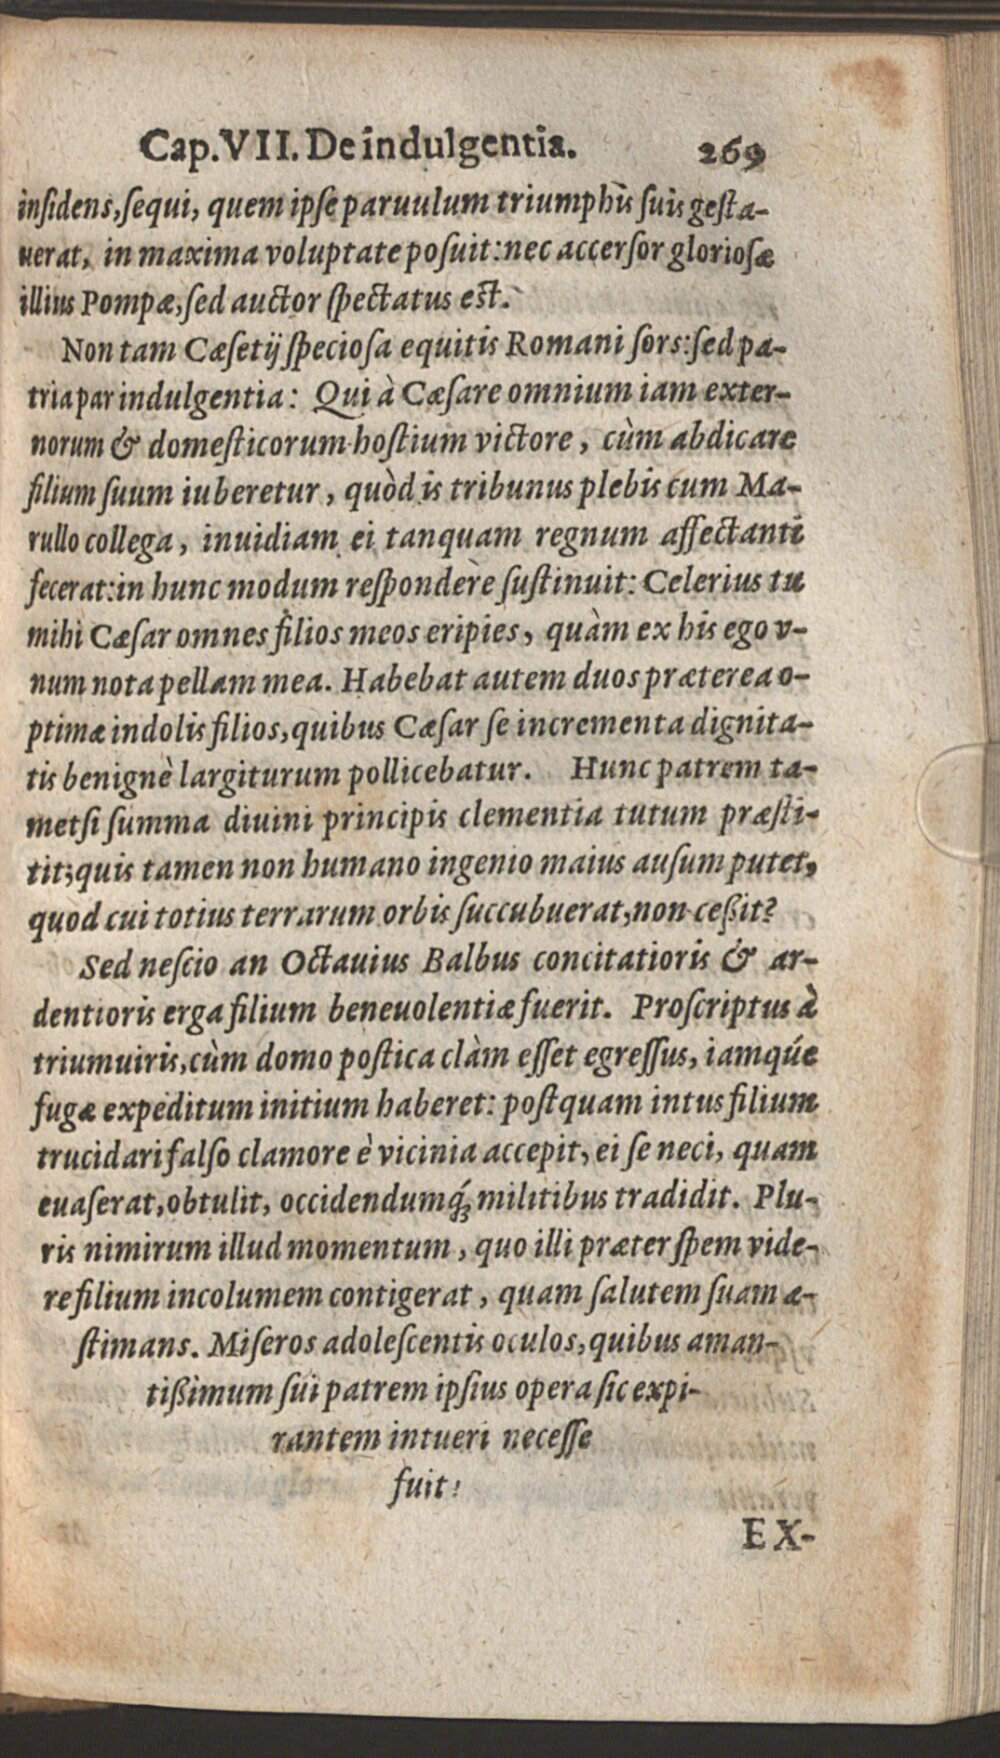 Cap. VII. De indulgentia. 269
inſidens, ſequi, quem ipſe paruulum triumphis ſuis geſta-
uerat, in maxima voluptate poſuit: nec accerſor glorioſæ
illius Pompæ, ſed auctor ſpectatus eſt.
Non tam Cæſetij ſpecioſa equitis Romani ſors: ſed pa-
tria par indulgentia: Qui à Cæſare omnium iam exter-
norum & domeſticorum hoſtium victore, cùm abdicare
filium ſuum iuberetur, quòd is tribunus plebis cum Ma-
rullo collega, inuidiam ei tanquam regnum affectanti
fecerat: in hunc modum reſpondere ſuſtinuit: Celerius tu
mihi Cæſar omnes filios meos eripies, quàm ex his ego v-
num nota pellam mea. Habebat autem duos præterea o-
ptimæ indolis filios, quibus Cæſar ſe incrementa dignita-
tis benignè largiturum pollicebatur. Hunc patrem ta-
metſi ſumma diuini principis clementia tutum præſti-
tit; quis tamen non humano ingenio maius auſum putet,
quòd cui totius terrarum orbis ſuccubuerat, non ceßit?
Sed neſcio an Octauius Balbus concitatioris & ar-
dentioris erga filium beneuolentiæ fuerit. Proſcriptus à
triumuiris, cùm domo poſtica clàm eſſet egreſſus, iamqúe
fugæ expeditum initium haberet: poſtquam intus filium
trucidari falſo clamore è vicinia accepit, ei ſe neci, quam
euaſerat, obtulit, occidendumq́; militibus tradidit. Plu-
ris nimirum illud momentum, quo illi præter ſpem vide-
re filium incolumem contigerat, quam ſalutem ſuam æ-
ſtimans. Miſeros adoleſcentis oculos, quibus aman-
tißimum ſui patrem ipſius opera ſic expi-
rantem intueri neceſſe
fuit!
EX-